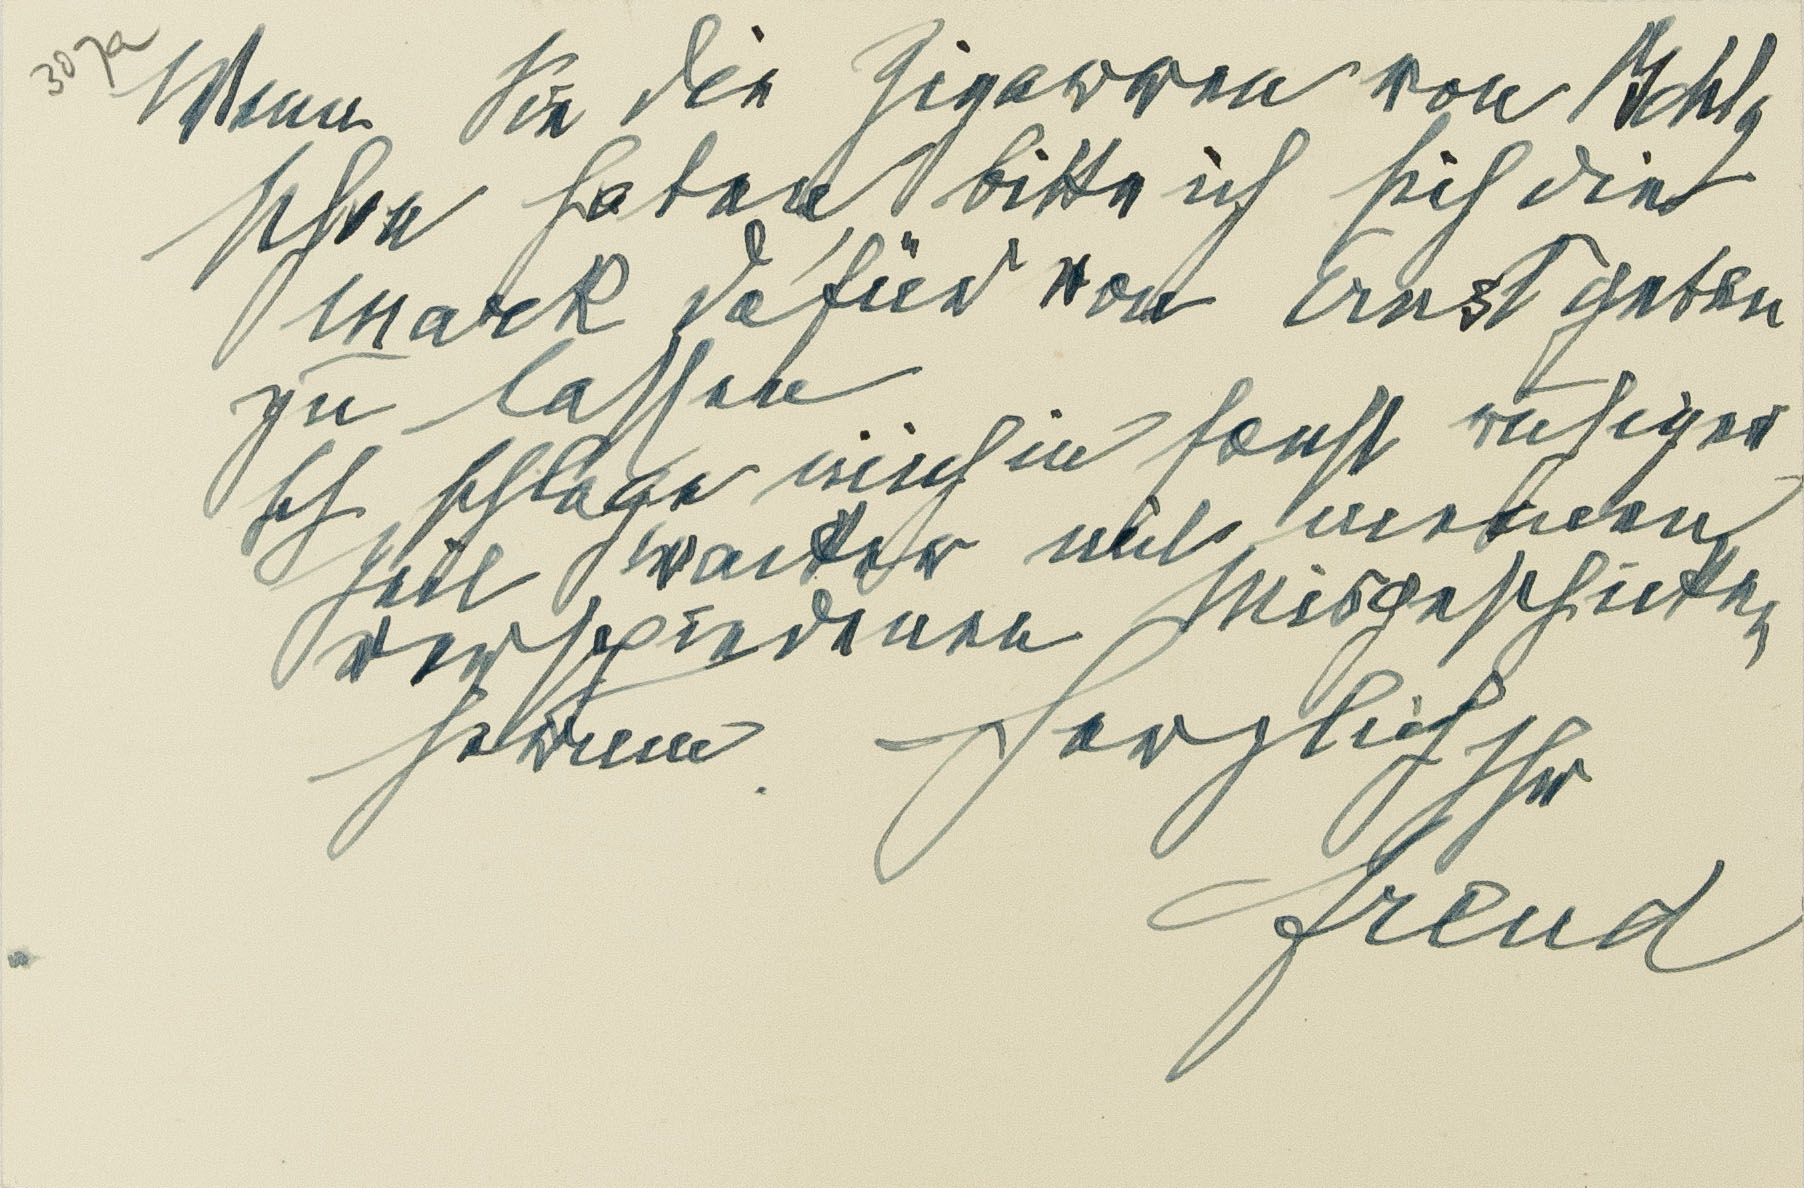 30 7a
Wenn Sie die Zigarren von
schon haben, bitte ich sich die
Mark dafür von Ernst geben
zu lassen
Ich schlage mich in sonst ruhiger
Zeit weiter mit meinen
verschiedenen Misgeschicken
herum. Herzlich
Ihr
Freud